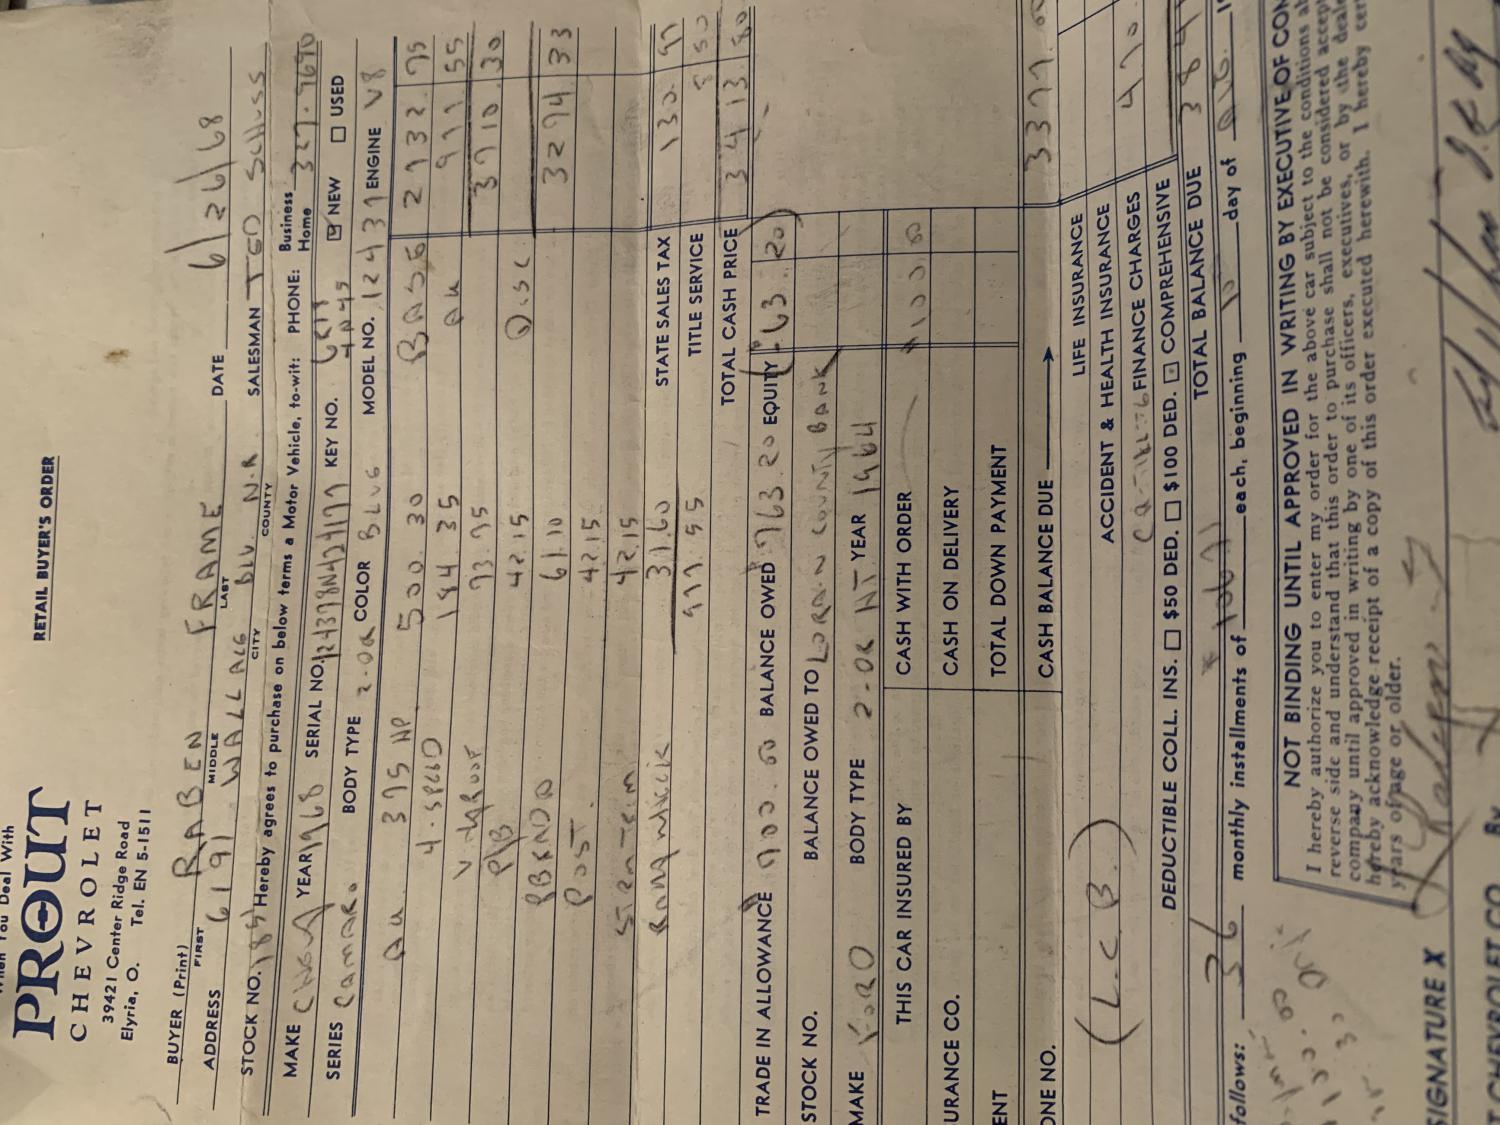 When You Deal With
PROUT
CHEVROLET
39421 Center Ridge Road
Elyria, O. Tel. EN 5-1511
RETAIL BUYER'S ORDER
BUYER (Print) RABEN FRAME DATE 6/26/68
FIRST MIDDLE LAST
ADDRESS 6191 WALLACE BLV N.R. SALESMAN TED SCHUSS
CITY COUNTY
STOCK NO. Hereby agrees to purchase on below terms a Motor Vehicle, to-wit: PHONE: Business Home 327-9690
MAKE Chevy YEAR 1968 SERIAL NO. 124378N424177 KEY NO. NEW USED
SERIES Camaro BODY TYPE 2-DR COLOR BLUE MODEL NO. 12431 ENGINE V8
375 HP 500.30 BASE 2732.75
4-SPEED 184.35 977.55
V-dyRoof 73.75 3710.30
P/B 42.15 DISC
61.10 3294.33
POST. 42.15
42.15
31.60 STATE SALES TAX 130.97
977.55 TITLE SERVICE
TOTAL CASH PRICE 3413.80
TRADE IN ALLOWANCE 700.00 BALANCE OWED 763.20 EQUITY (63.20)
STOCK NO. BALANCE OWED TO LORAIN COUNTY BANK
MAKE FORD BODY TYPE 2-DR HT YEAR 1964
THIS CAR INSURED BY CASH WITH ORDER 100.00
URANCE CO. CASH ON DELIVERY
ENT TOTAL DOWN PAYMENT
ONE NO. CASH BALANCE DUE 3377.00
LIFE INSURANCE
(L.C.B.) ACCIDENT & HEALTH INSURANCE
FINANCE CHARGES 470.
DEDUCTIBLE COLL. INS. $50 DED. $100 DED. COMPREHENSIVE
TOTAL BALANCE DUE
follows: 36 monthly installments of 106.71 each, beginning 10 day of AUG.
NOT BINDING UNTIL APPROVED IN WRITING BY EXECUTIVE OF CON
I hereby authorize you to enter my order for the above car subject to the conditions
reverse side and understand that this order to purchase shall not be considered accep
company until approved in writing by one of its officers, executives, or by the deale
hereby acknowledge receipt of a copy of this order executed herewith. I hereby cer
years of age or older.
SIGNATURE X
T CHEVROLET CO. By